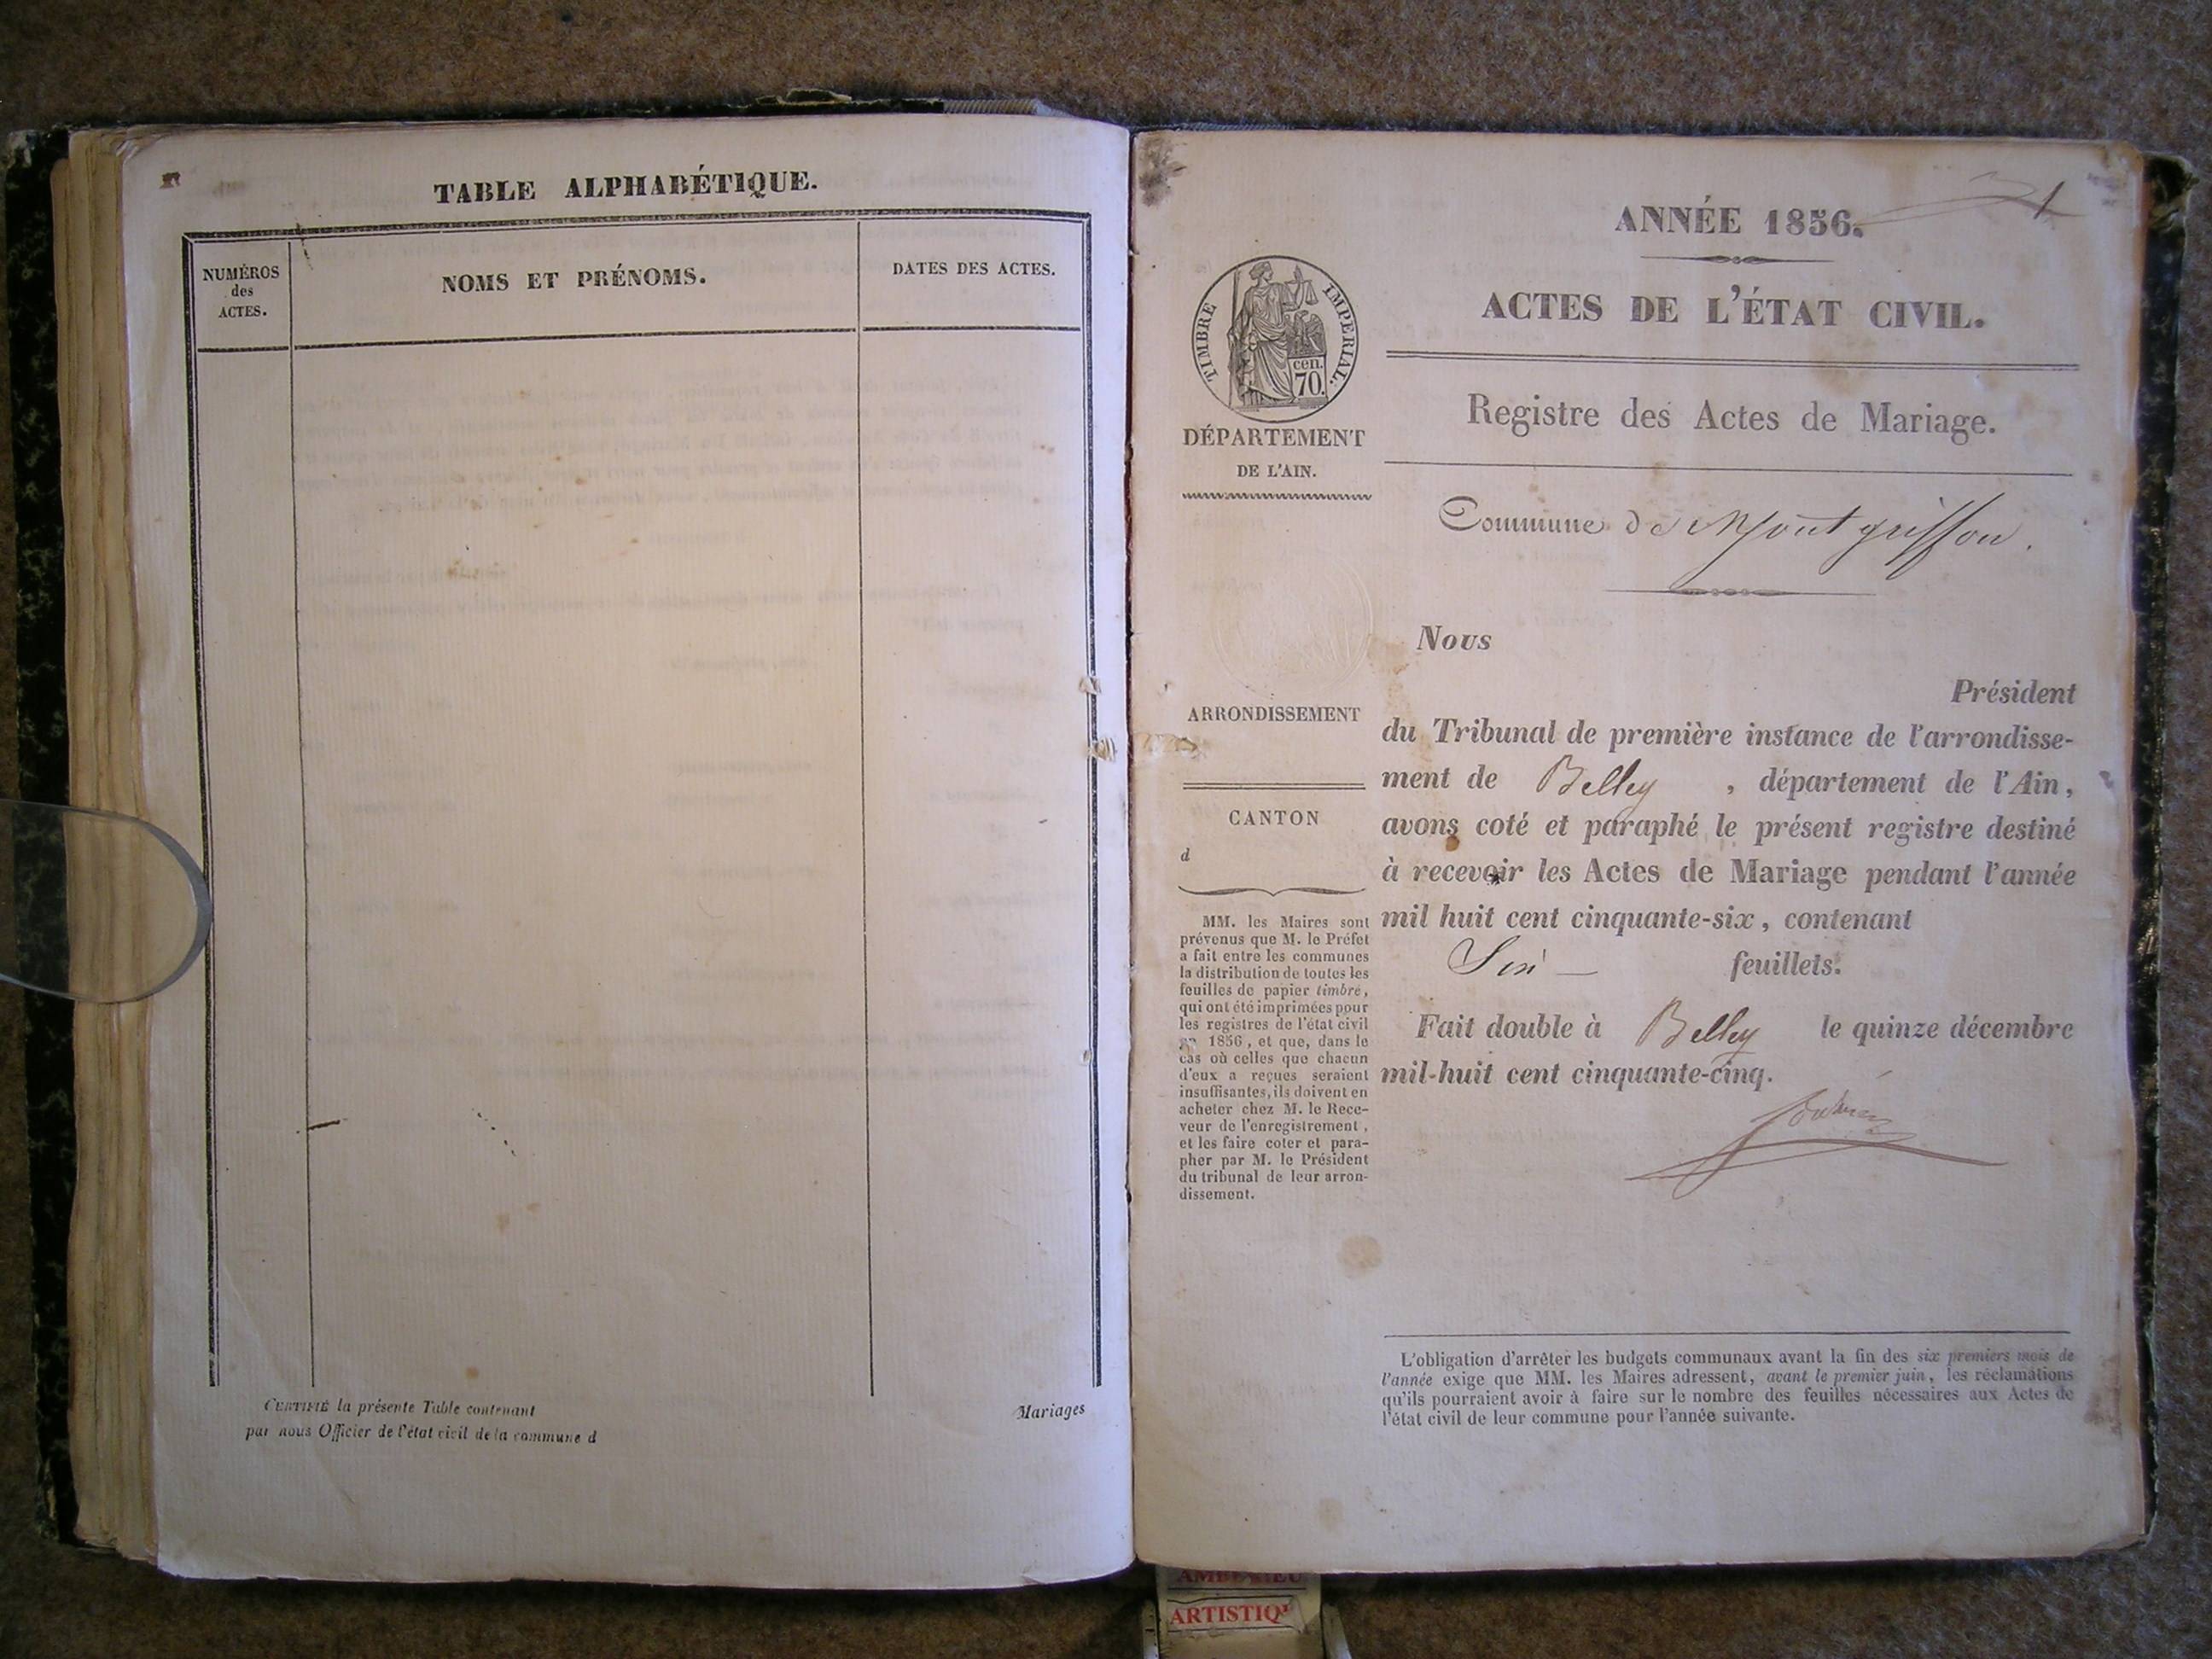 TABLE ALPHABÉTIQUE.
NUMÉROS
des
ACTES.
NOMS ET PRÉNOMS.
DATES DES ACTES.
CERTIFIÉ la présente Table contenant
Mariages
par nous Officier de l'état civil de la commune d
1
ANNÉE 1856.
ACTES DE L'ÉTAT CIVIL.
TIMBRE IMPERIAL.
cen.
70.
DÉPARTEMENT
DE L'AIN.
Registre des Actes de Mariage.
Commune de Montgriffon.
Nous
Président
du Tribunal de première instance de l'arrondisse-
ment de Belley, département de l'Ain,
avons coté et paraphé le présent registre destiné
à recevoir les Actes de Mariage pendant l'année
mil huit cent cinquante-six, contenant
Six feuillets.
Fait double à Belley le quinze décembre
mil-huit cent cinquante-cinq.
ARRONDISSEMENT
CANTON
d
MM. les Maires sont
prévenus que M. le Préfet
a fait entre les communes
la distribution de toutes les
feuilles de papier timbré,
qui ont été imprimées pour
les registres de l'état civil
1856, et que, dans le
cas où celles que chacun
d'eux a reçues seraient
insuffisantes, ils doivent en
acheter chez M. le Rece-
veur de l'enregistrement,
et les faire coter et para-
pher par M. le Président
du tribunal de leur arron-
dissement.
L'obligation d'arrêter les budgets communaux avant la fin des six premiers mois de
l'année exige que MM. les Maires adressent, avant le premier juin, les réclamations
qu'ils pourraient avoir à faire sur le nombre des feuilles nécessaires aux Actes de
l'état civil de leur commune pour l'année suivante.